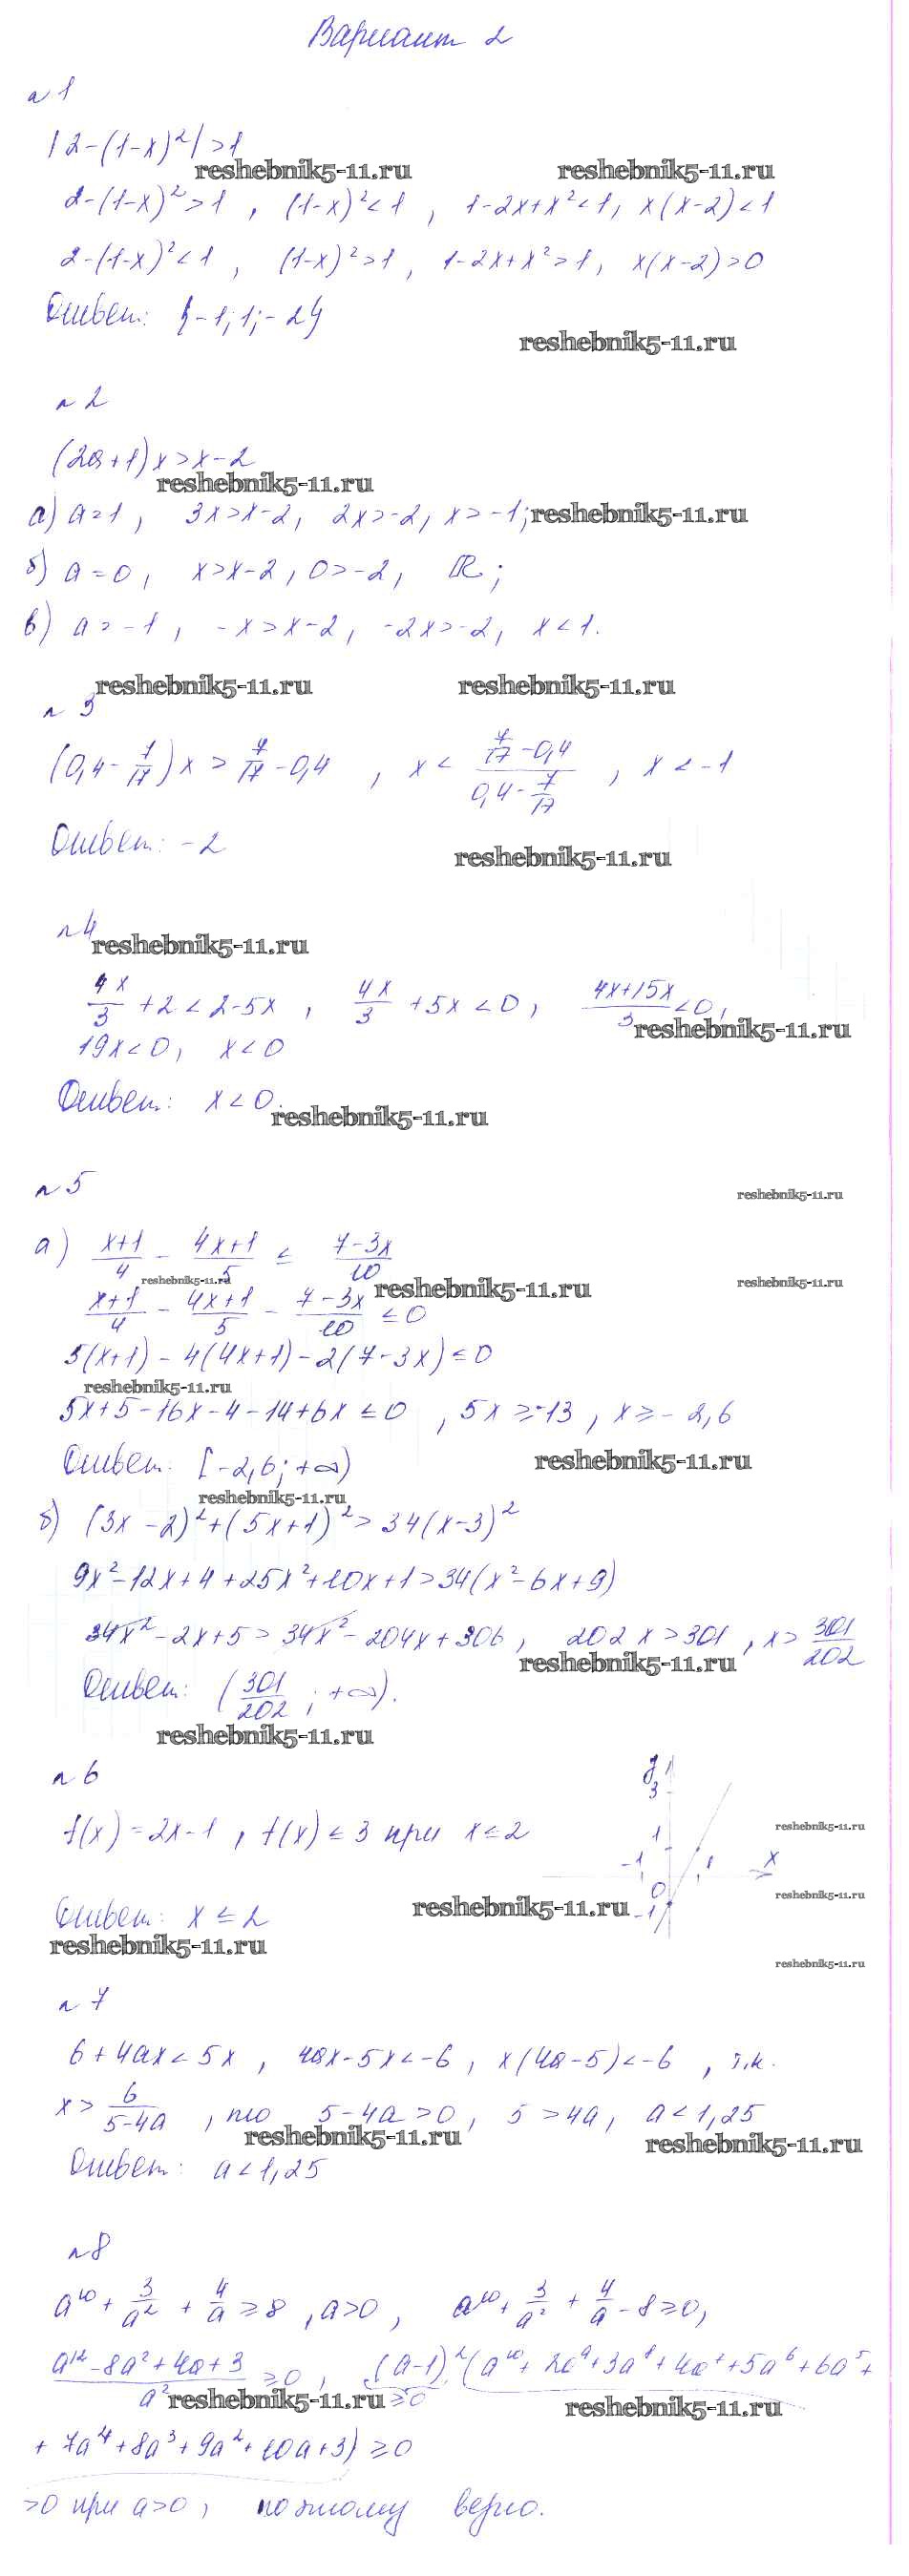 Вариант 2
n 1
|2-(1-x)²|>1
reshebnik5-11.ru reshebnik5-11.ru
2-(1-x)²>1, (1-x)²<1, 1-2x+x²<1, x(x-2)<1
2-(1-x)²<1, (1-x)²>1, 1-2x+x²>1, x(x-2)>0
Ответ: {-1; 1; -2}
reshebnik5-11.ru
n 2
(2a+1)x>x-2
reshebnik5-11.ru
а) a=1, 3x>x-2, 2x>-2, x>-1; reshebnik5-11.ru
б) a=0, x>x-2, 0>-2, ℝ;
в) a=-1, -x>x-2, -2x>-2, x<1.
reshebnik5-11.ru reshebnik5-11.ru
n 3
(0,4-7/17)x > 7/17-0,4, x < (7/17-0,4)/(0,4-7/17), x<-1
Ответ: -2
reshebnik5-11.ru
n 4
reshebnik5-11.ru
4x/3+2<2-5x, 4x/3+5x<0, (4x+15x)/3<0,
reshebnik5-11.ru
19x<0, x<0
Ответ: x<0.
reshebnik5-11.ru
n 5
reshebnik5-11.ru
а) (x+1)/4 - (4x+1)/5 ≤ (7-3x)/10
reshebnik5-11.ru reshebnik5-11.ru reshebnik5-11.ru
(x+1)/4 - (4x+1)/5 - (7-3x)/10 ≤0
5(x+1)-4(4x+1)-2(7-3x)≤0
reshebnik5-11.ru
5x+5-16x-4-14+6x≤0, 5x≥-13, x≥-2,6
Ответ: [-2,6; +∞)
reshebnik5-11.ru
reshebnik5-11.ru
б) (3x-2)²+(5x+1)²>34(x-3)²
9x²-12x+4+25x²+10x+1>34(x²-6x+9)
34x²-2x+5>34x²-204x+306, 202x>301, x>301/202
reshebnik5-11.ru
Ответ: (301/202; +∞).
reshebnik5-11.ru
n 6
y
3
f(x)=2x-1, f(x)≤3 при x≤2
1
reshebnik5-11.ru
-1 1 x
0
reshebnik5-11.ru
-1
reshebnik5-11.ru
Ответ: x≤2
reshebnik5-11.ru
reshebnik5-11.ru
n 7
6+4ax<5x, 4ax-5x<-6, x(4a-5)<-6, т.к.
x>6/(5-4a), то 5-4a>0, 5>4a, a<1,25
reshebnik5-11.ru reshebnik5-11.ru
Ответ: a<1,25
n 8
a¹⁰+3/a²+4/a≥8, a>0, a¹⁰+3/a²+4/a-8≥0,
(a¹²-8a²+4a+3)/a²≥0, (a-1)²(a¹⁰+2a⁹+3a⁸+4a⁷+5a⁶+6a⁵+
≥0
reshebnik5-11.ru reshebnik5-11.ru
+7a⁴+8a³+9a²+10a+3)≥0
>0 при a>0, поэтому верно.